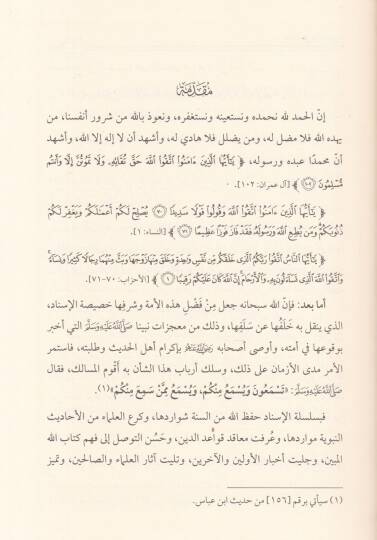 مُقَدِّمَة
إنّ الحمد لله نحمده ونستعينه ونستغفره، ونعوذ بالله من شرور أنفسنا، من
يهده الله فلا مضل له، ومن يضلل فلا هادي له، وأشهد أن لا إله إلا الله، وأشهد
أن محمدًا عبده ورسوله، ﴿ يَٰٓأَيُّهَا ٱلَّذِينَ ءَامَنُوا۟ ٱتَّقُوا۟ ٱللَّهَ حَقَّ تُقَاتِهِۦ وَلَا تَمُوتُنَّ إِلَّا وَأَنتُم
مُّسْلِمُونَ ١٠٢ ﴾ [آل عمران: ١٠٢].
﴿ يَٰٓأَيُّهَا ٱلَّذِينَ ءَامَنُوا۟ ٱتَّقُوا۟ ٱللَّهَ وَقُولُوا۟ قَوْلًا سَدِيدًا ٧٠ يُصْلِحْ لَكُمْ أَعْمَٰلَكُمْ وَيَغْفِرْ لَكُمْ
ذُنُوبَكُمْ وَمَن يُطِعِ ٱللَّهَ وَرَسُولَهُۥ فَقَدْ فَازَ فَوْزًا عَظِيمًا ٧١ ﴾ [النساء: ١].
﴿ يَٰٓأَيُّهَا ٱلنَّاسُ ٱتَّقُوا۟ رَبَّكُمُ ٱلَّذِى خَلَقَكُم مِّن نَّفْسٍ وَٰحِدَةٍ وَخَلَقَ مِنْهَا زَوْجَهَا وَبَثَّ مِنْهُمَا رِجَالًا كَثِيرًا وَنِسَآءً
وَٱتَّقُوا۟ ٱللَّهَ ٱلَّذِى تَسَآءَلُونَ بِهِۦ وَٱلْأَرْحَامَ إِنَّ ٱللَّهَ كَانَ عَلَيْكُمْ رَقِيبًا ١ ﴾ [الأحزاب: ٧٠-٧١].
أما بعد: فإن الله سبحانه جعل مِنْ فَضْلِ هذه الأمة وشرفِها خصيصة الإسناد،
الذي ينقل به خَلَفُها عن سَلَفِها، وذلك من معجزات نبينا ﷺ التي أخبر
بوقوعها في أمته، وأوصى أصحابه بإكرام أهل الحديث وطلبته، فاستمر
الأمر مدى الأزمان على ذلك، وسلك أرباب هذا الشأن به أقوم المسالك، فقال
ﷺ: «تَسْمَعُونَ وَيُسْمَعُ مِنْكُمْ، وَيُسْمَعُ مِمَّنْ سَمِعَ مِنْكُمْ»(١).
فبسلسلة الإسناد حفظ الله من السنة شواردها، وكرع العلماء من الأحاديث
النبوية مواردها، وعُرفت معاقد قواعد الدين، وحَسُن التوصل إلى فهم كتاب الله
المبين، وجليت أخبار الأولين والآخرين، وتليت آثار العلماء والصالحين، وتميز
(١) سيأتي برقم [١٥٦] من حديث ابن عباس.